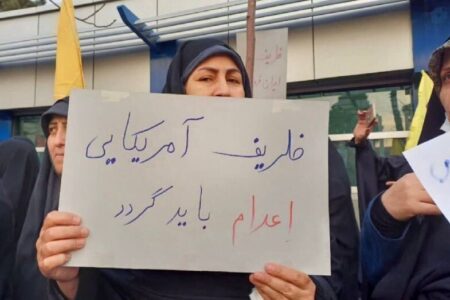 ظریف آمریکایی
اِعدام باید گردد
ظریف